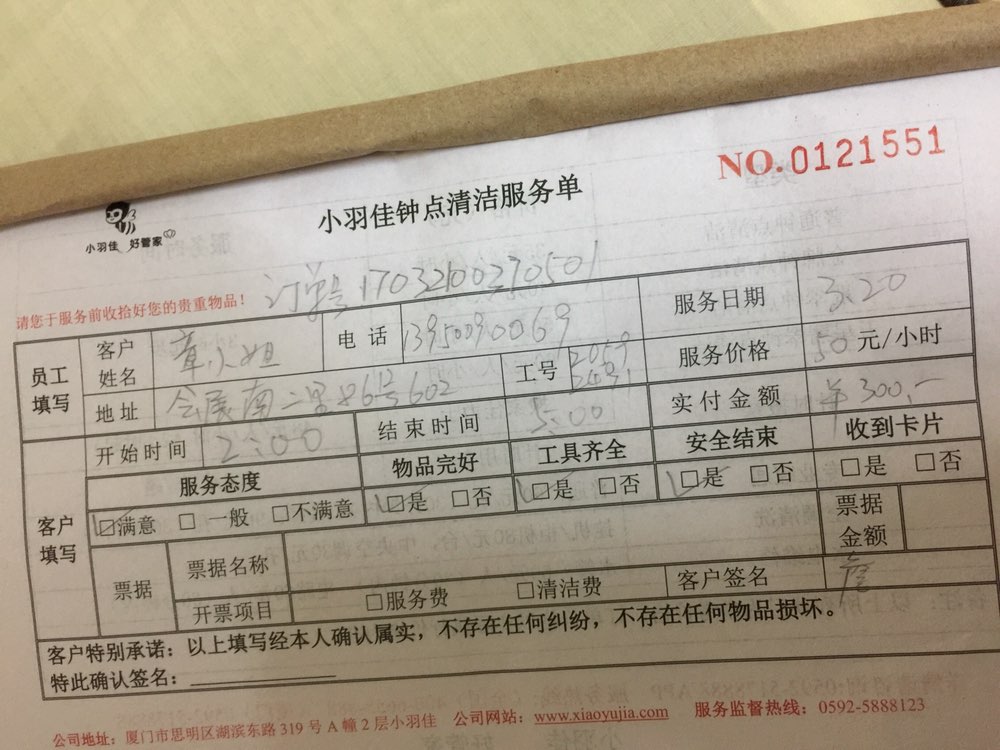 NO.0121551
小羽佳钟点清洁服务单
小羽佳 好管家
请您于服务前收拾好您的贵重物品！ 订单号 17032100270501
员工填写 客户姓名 章小姐 电话 13950090069 服务日期 3.20
地址 会展南二里 602 工号 2059 服务价格 50 元/小时
开始时间 2:00 结束时间 5:00 实付金额 ¥300.-
客户填写 服务态度 物品完好 工具齐全 安全结束 收到卡片
☑满意 □一般 □不满意 ☑是 □否 ☑是 □否 ☑是 □否 □是 □否
票据 票据名称 票据金额
开票项目 □服务费 □清洁费 客户签名
客户特别承诺：以上填写经本人确认属实，不存在任何纠纷，不存在任何物品损坏。
特此确认签名：
公司地址：厦门市思明区湖滨东路 319 号 A 幢 2 层小羽佳 公司网站：www.xiaoyujia.com 服务监督热线：0592-5888123